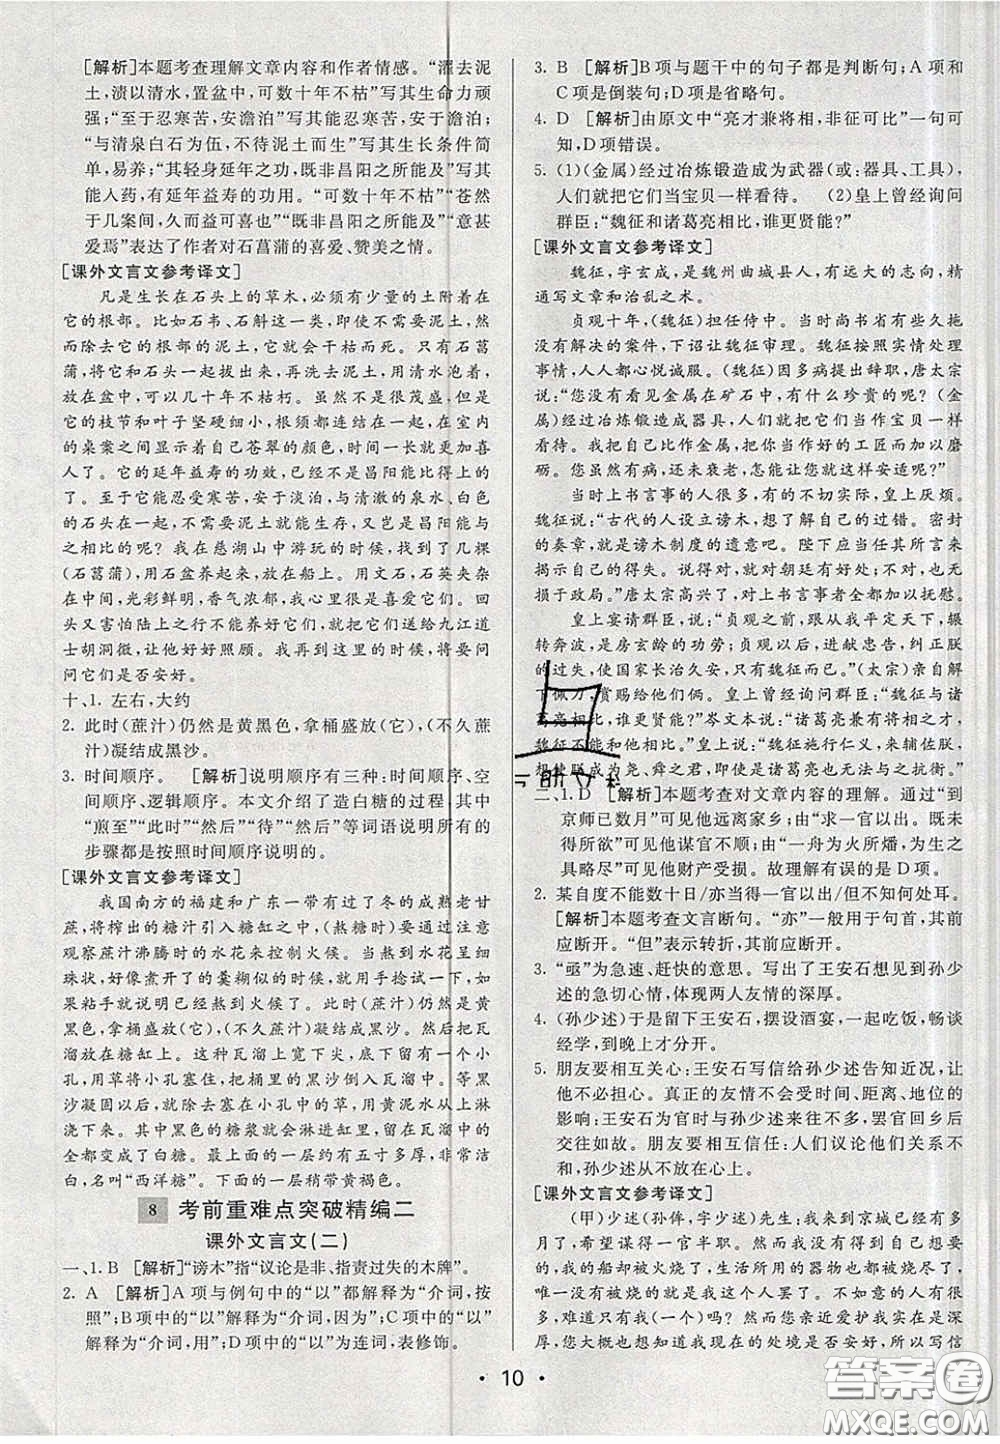 [解析]本题考查理解文章内容和作者情感。“濯去泥
土,渍以清水,置盆中,可数十年不枯”写其生命力顽
强;“至于忍寒苦,安澹泊”写其能忍寒苦、安于澹泊;
“与清泉白石为伍,不待泥土而生”写其生长条件简
易,易养;“其轻身延年之功,既非昌阳之所能及”写其
能入药,有延年益寿的功用。“可数十年不枯”“苍然
于几案间,久而益可喜也”“既非昌阳之所能及”“意甚
爱焉”表达了作者对石菖蒲的喜爱、赞美之情。
[课外文言文参考译文]
凡是生长在石头上的草木,必须有少量的土附着在
它的根部。比如石韦、石斛这一类,即使不需要泥土,然
而除去它的根部的泥土,它就会干枯而死。只有石菖
蒲,将它和石头一起取来,洗去泥土,用清水浸泡着,
放在盆中,可以几十年不干枯。虽然不是很茂盛,但是
它的枝节和叶子坚硬细小,根须都连结在一起,在室内
的桌案之间显示着自己苍翠的颜色,时间一长就更加喜
人了。它的延年益寿的功效,已经不是昌阳能比得上的
了。至于它能忍受寒苦,安于淡泊,与清澈的泉水、白色
的石头在一起,不需要泥土就能生存,又岂是昌阳能与
之相比的呢?我在慈湖山中游玩的时候,找到了几棵
(石菖蒲),用石盆养起来,放在船上。用文石、石英夹杂
在中间,光彩鲜明,香气浓郁,我非常喜爱它们。回过
头又害怕陆上之行不能养好它们,就把它们送给九江道
士胡洞微,让他好好照顾。我再来这里的时候,将要问
问它们是否安好。
十、1. 左右,大约
2. 此时(蔗汁)仍然是黄黑色,拿桶盛放(它),(不久蔗
汁)凝结成黑沙。
3. 时间顺序。 [解析]说明顺序有三种:时间顺序、空
间顺序、逻辑顺序。本文介绍了造白糖的过程,其中
“煎至”“此时”“然后”“待”“然后”等词语说明所有的
步骤都是按照时间顺序说明的。
[课外文言文参考译文]
我国南方的福建和广东一带有过了冬的成熟老甘
蔗,将榨出的糖汁引入糖缸之中,(熬糖时)要通过注意
观察蔗汁沸腾时的水花来控制火候。当熬到水花呈细
珠状,好像煮开了的羹糊似的时候,就用手捻试一下,如
果粘手就说明已经熬到火候了。此时(蔗汁)仍然是黄
黑色,拿桶盛放(它),(不久蔗汁)凝结成黑沙。然后把瓦
溜放在糖缸上。这种瓦溜上宽下尖,底下留有一个小
孔,用草将小孔塞住,把桶里的黑沙倒入瓦溜中。等黑沙
凝固以后,就除去塞在小孔中的草,用黄泥水从上淋
浇下来。其中黑色的糖浆就会淋进缸里,留在瓦溜中的
全都变成了白糖。其中最上面的一层约有五寸多厚,非常洁
白,名叫“西洋糖”。下面的一层稍带黄褐色。
8 考前重难点突破精编二
课外文言文(二)
一、1. B [解析]“谤木”指“议论是非、指责过失的木牌”。
2. A [解析]A项与例句中的“以”都解释为“介词,按
照”;B项中的“以”解释为“介词,因为”;C项中的“以”
解释为“介词,用”;D项中的“以”为连词,表修饰。
3. B [解析]B项与题干中的句子都是判断句;A项和
C项是倒装句;D项是省略句。
4. D [解析]由原文中“亮才兼将相,非征可比”一句可
知,D项错误。
5. (1)(金属)经过冶炼锻造成为武器(或:器具、工具),
人们就把它们当宝贝一样看待。 (2)皇上曾经询问
群臣:“魏征和诸葛亮相比,谁更贤能?”
[课外文言文参考译文]
魏征,字玄成,是魏州曲城县人,有远大的志向,精
通写文章和治乱之术。
贞观十年,(魏征)担任侍中。当时尚书省有些久拖
没有解决的案件,下诏让魏征审理。魏征按照实情处理
事情,人人都心悦诚服。(魏征)因多病提出辞职,唐太宗
说:“您难道没看见金属在矿石中,有什么珍贵的吗?(金
属)经过冶炼锻造成器具,人们就把它们当作宝贝一样
看待。我把自己比作金属,把你当作好的工匠而加以磨
砺。您虽然有病,还未衰老,怎能让您就这样安逸呢?”
当时上书言事的人很多,有的不切实际,皇上厌烦。
魏征说:“古代的人设立谤木,想了解自己的过错。密封
的奏章,就是谤木制度的遗意吧。陛下应当任凭人们来
揭示自己的得失。说得对,就对朝廷有好处;不对,也无
损于政局。”唐太宗高兴了,对上书言事者全都加以抚慰。
皇上宴请群臣,说:“贞观之前,跟从我平定天下,辗
转奔波,是房玄龄的功劳;贞观以后,进献忠告,纠正朕
的过失,使国家长治久安,只有魏征而已。”(太宗)亲自解
下佩刀,赏赐给他们俩。皇上曾经询问群臣:“魏征与诸
葛亮相比,谁更贤能?”岑文本说:“诸葛亮兼有将相之才,
魏征不能和他相比。”皇上说:“魏征施行仁义,来辅佐朕,
想使朕成为尧、舜之君,即使是诸葛亮也无法与之抗衡。”
二、1. D [解析]本题考查对文章内容的理解。通过“到
京师已数月”可见他远离家乡;由“求此一官,既未
得所欲”可见他谋官不顺;由“一舟为火所燔,为生之
具略尽”可见他财产受损。故理解有误的是D项。
2. 某自度不能数十日/亦当得一官以出/但不知何处耳。
[解析]本题考查文言断句。“亦”一般用于句首,其前
应断开。“但”表示转折,其前应断开。
3. “亟”为急速、赶快的意思。写出了王安石想见到孙少
述的急切心情,体现两人友情的深厚。
4. (孙少述)于是留下王安石,摆设酒宴,一起吃饭,畅谈
经学,到晚上才分开。
5. 朋友要相互关心:王安石写信给孙少述告知近况,让
他不必担心。真正的友情不会受时间、距离、地位的
影响:王安石为官时与孙少述来往不多,罢官回乡后
交往如故。朋友要相互信任:人们议论他们关系不
和,孙少述从不放在心上。
[课外文言文参考译文]
(甲)少述(孙侔,字少述)先生:我来京城已经有好多
月了,希望谋得一官半职。可是,求这个官职,没有如
愿,我的船却被火烧了,生活所用的器物也都被烧了,您
大概也会认为我是这个人罢了。然而,有很多人
,难道只有我(才这样)吗?但是,您最近亲爱护我实在是深
厚,您大概也想知道我现在的处境是否安好,所以写信
10
答案卷
MXQE.COM